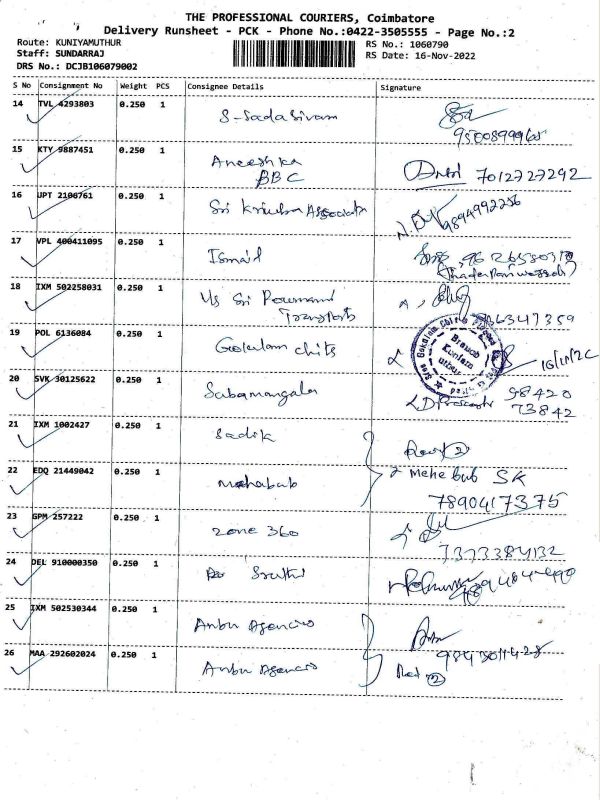 THE PROFESSIONAL COURIERS, Coimbatore
Delivery Runsheet - PCK - Phone No.:0422-3505555 - Page No.:2
Route: KUNIYAMUTHUR
RS No.: 1060790
Staff: SUNDARRAJ
RS Date: 16-Nov-2022
DRS No.: DCJB106079002
S No Consignment No Weight PCS Consignee Details Signature
14 TVL 4293803 0.250 1 S-Sadasivam
15 KTY 9887451 0.250 1 Aneeshka
BBC 7012727292
16 JPT 2106761 0.250 1 Sri Associate 9894992256
17 VPL 400411095 0.250 1 Ismail
18 IXM 502258031 0.250 1 Sri
Transports
19 POL 6136084 0.250 1 Gokulam chits
Branch
20 SVK 30125622 0.250 1 Sabamangala 98420
73842
21 IXM 1002427 0.250 1 Sadik
22 EDQ 21449042 0.250 1 Mahabub Mehebub SK
7890417375
23 GPM 257222 0.250 1 Zone 360
7373384132
24 DEL 910000350 0.250 1 Sruthi
25 IXM 502530344 0.250 1 Anbu Agencies
26 MAA 292602024 0.250 1 Anbu Agencies